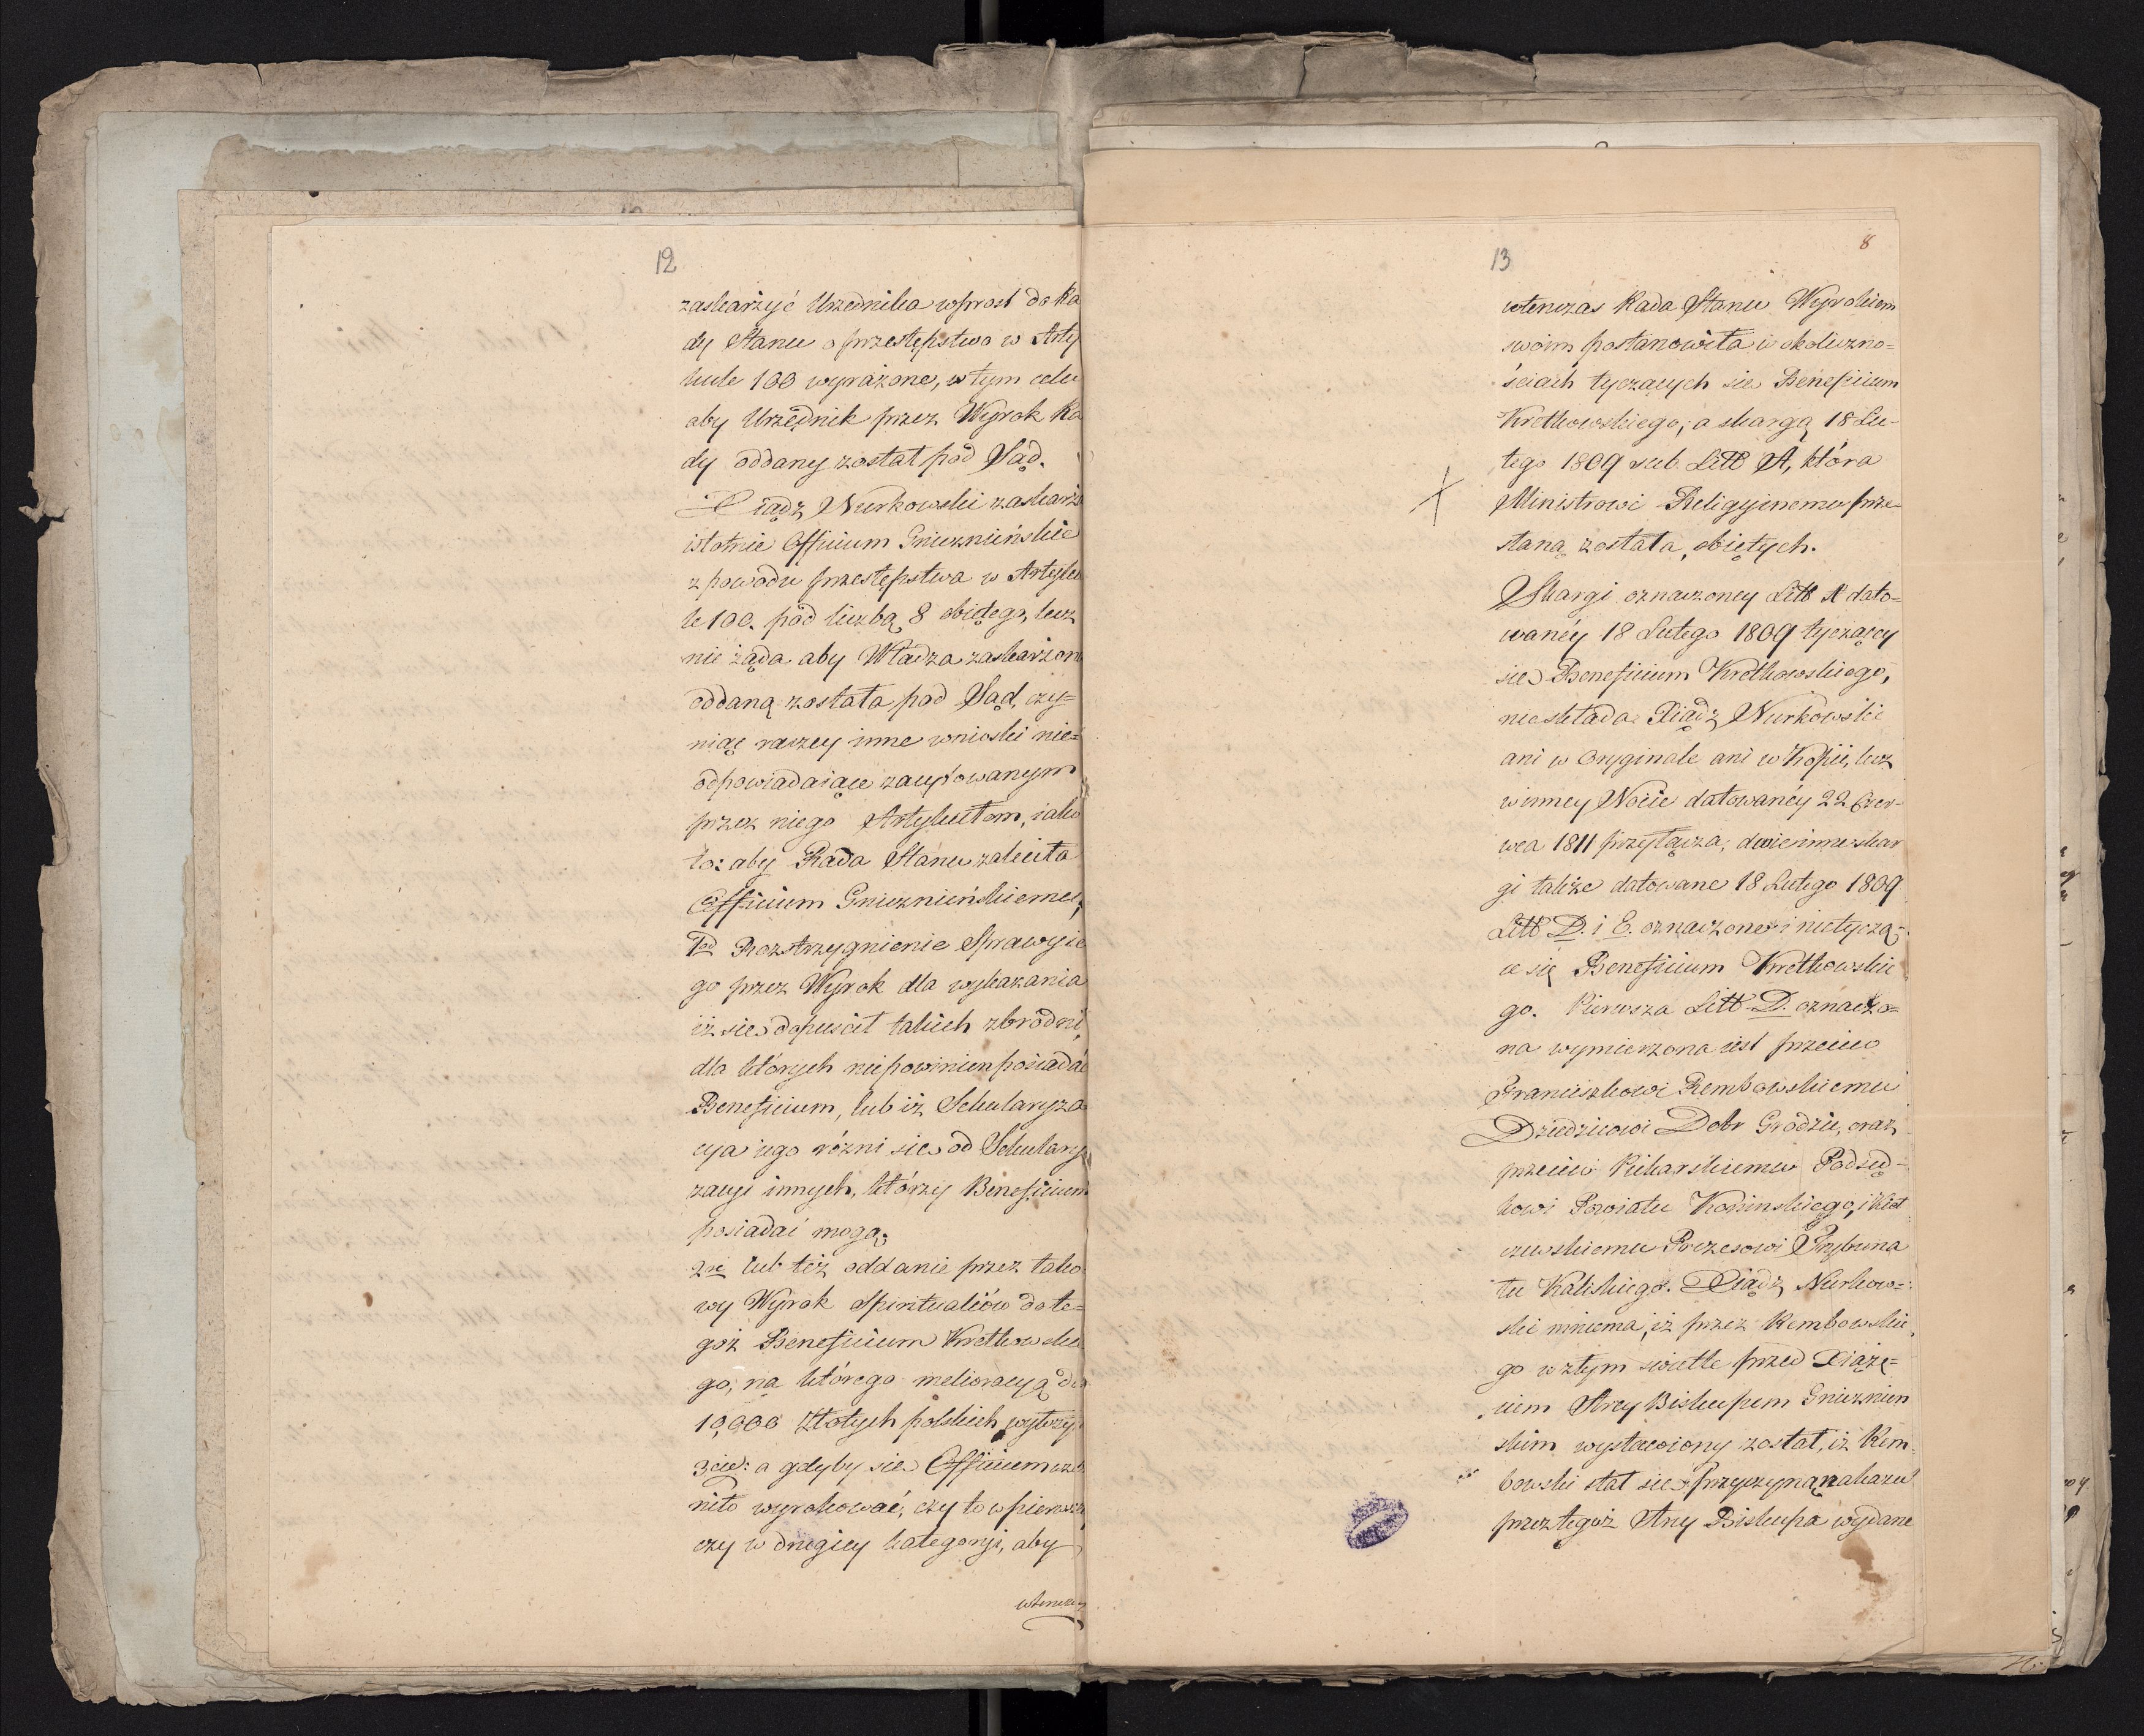 12
zaskarżyć Urzednika wprost do Ra
dy Stanu o przestępstwa w Arty
kule 100 wyrażone, w tym celu
aby Urzędnik przez Wyrok Ra
dy oddany został pod Sąd.
Xiądz Nurkowski zaskarża
istotnie Officium Gnieznieńskie
z powodu przestępstwa w Artyku
le 100. pod liczbą 8 obiętego, lecz
nie żąda aby Władza zaskarzon
oddaną została pod Sąd, czy=
niąc raczey inne wnioski nie=
odpowiadaiące zacytowanym
przez niego Artykułom, iako
to: aby Rada Stanu zaleciła
Officium Gnieznieńskiemu,
1od Rozstrzygnienie Sprawy ie
go przez Wyrok dla wykazania
iż sie dopuścił takich zbrodni,
dla których niepowinien posiadać
Beneficium, lub iż Sekularyza
cya iego rózni sie od Sekulary
zacyi innych, którzy Beneficium
posiadać mogą.
2re lub też oddanie przez tako
wy Wyrok Spiritualiów do te=
goż Beneficium Kretkowskie
go, na którego melioracyą do
10,000 Złotych polskich wyłozy
3cie: a gdyby sie Officium wzbra
niło wyrokować, czy to w pierwszey
czy w drugiey kategoryi, aby
wtenczas
13
8
wtenczas Rada Stanu Wyrokiem
swoim postanowiła w okoliczno=
ściach tyczących sie Beneficium
Kretkowskiego, a skargą 18 Lu-
tego 1809 sub. Litt A, która
Ministrowi Religyinemu prze-
słaną została, obiętych.
Skargi oznaczoney Litt A dato=
waney 18 Lutego 1809 tyczącey
sie Beneficium Kretkowskiego,
nieskłada Xiądz Nurkowski
ani w Oryginale ani w Kopii, lecz
w inney Nocie datowaney 22 Czer-
wca 1811 przyłącza, dwie inne skar
gi także datowane 18 Lutego 1809
Litt D. i E. oznaczone i nietyczą-
ce się Beneficium Kretkowskie
go. Pierwsza Litt D. oznaczo=
na wymierzona iest przeciw
Franciszkowi Rembowskiemu
Dziedzicowi Dobr Grodzic, oraz
przeciw Piekarskiemu Podsęd-
kowi Powiatu Konińskiego, i Kieł
czewskiemu Prezesowi Trybuna
łu Kaliskiego. Xiądz Nurkow=
ski mniema, iż przez Rembowskie
go w złym świetle przed Xiążę=
ciem Arcy Biskupem Gnieznien
skim wystawiony został, iż Rem
bowski stał sie Przyczyną nakazu
przez tegoż Arcy Biskupa wydane